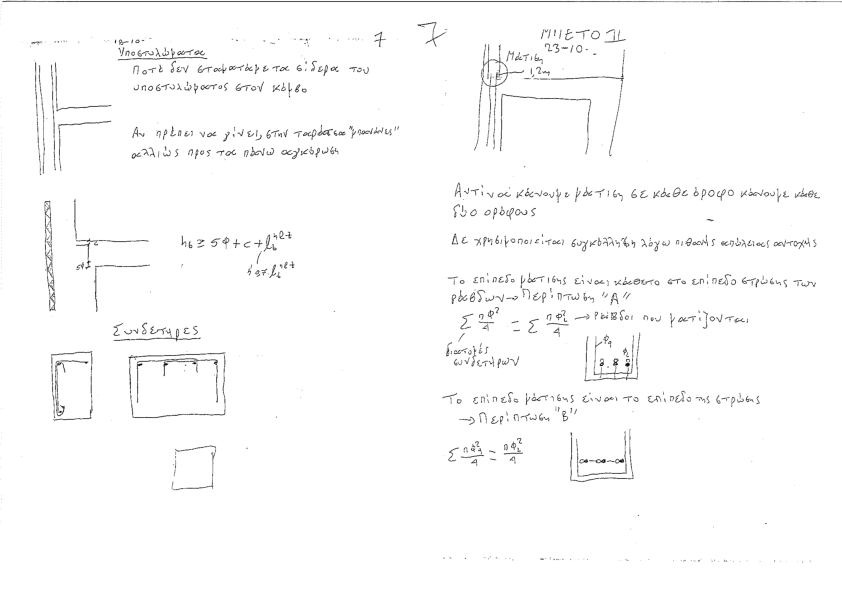 18-10-
7
Υποστυλώματα
Ποτέ δεν σταματάμε τα σίδερα του
υποστυλώματος στον κόμβο
Αν πρέπει να γίνει, στην ταράτσα "μπανάνες"
αλλιώς προς τα πάνω αγκύρωση
5Φ
h_b ≥ 5Φ + c + l_b^net
Συνδετήρες
7
ΜΠΕΤΟ II
23-10-
Μάτιση
1,2m
Αντί να κάνουμε μάτιση σε κάθε όροφο κάνουμε κάθε
δύο ορόφους
Δε χρησιμοποιείται συγκόλληση λόγω πιθανής απώλειας αντοχής
Το επίπεδο μάτισης είναι κάθετο στο επίπεδο στρώσης των
ράβδων → Περίπτωση "Α"
Σ πΦ²/4 = Σ πΦ_L²/4 → Ράβδοι που ματίζονται
διατομές
συνδετήρων
Φ_q
Φ_L
Το επίπεδο μάτισης είναι το επίπεδο της στρώσης
→ Περίπτωση "Β"
Σ πΦ_q²/4 = πΦ_L²/4